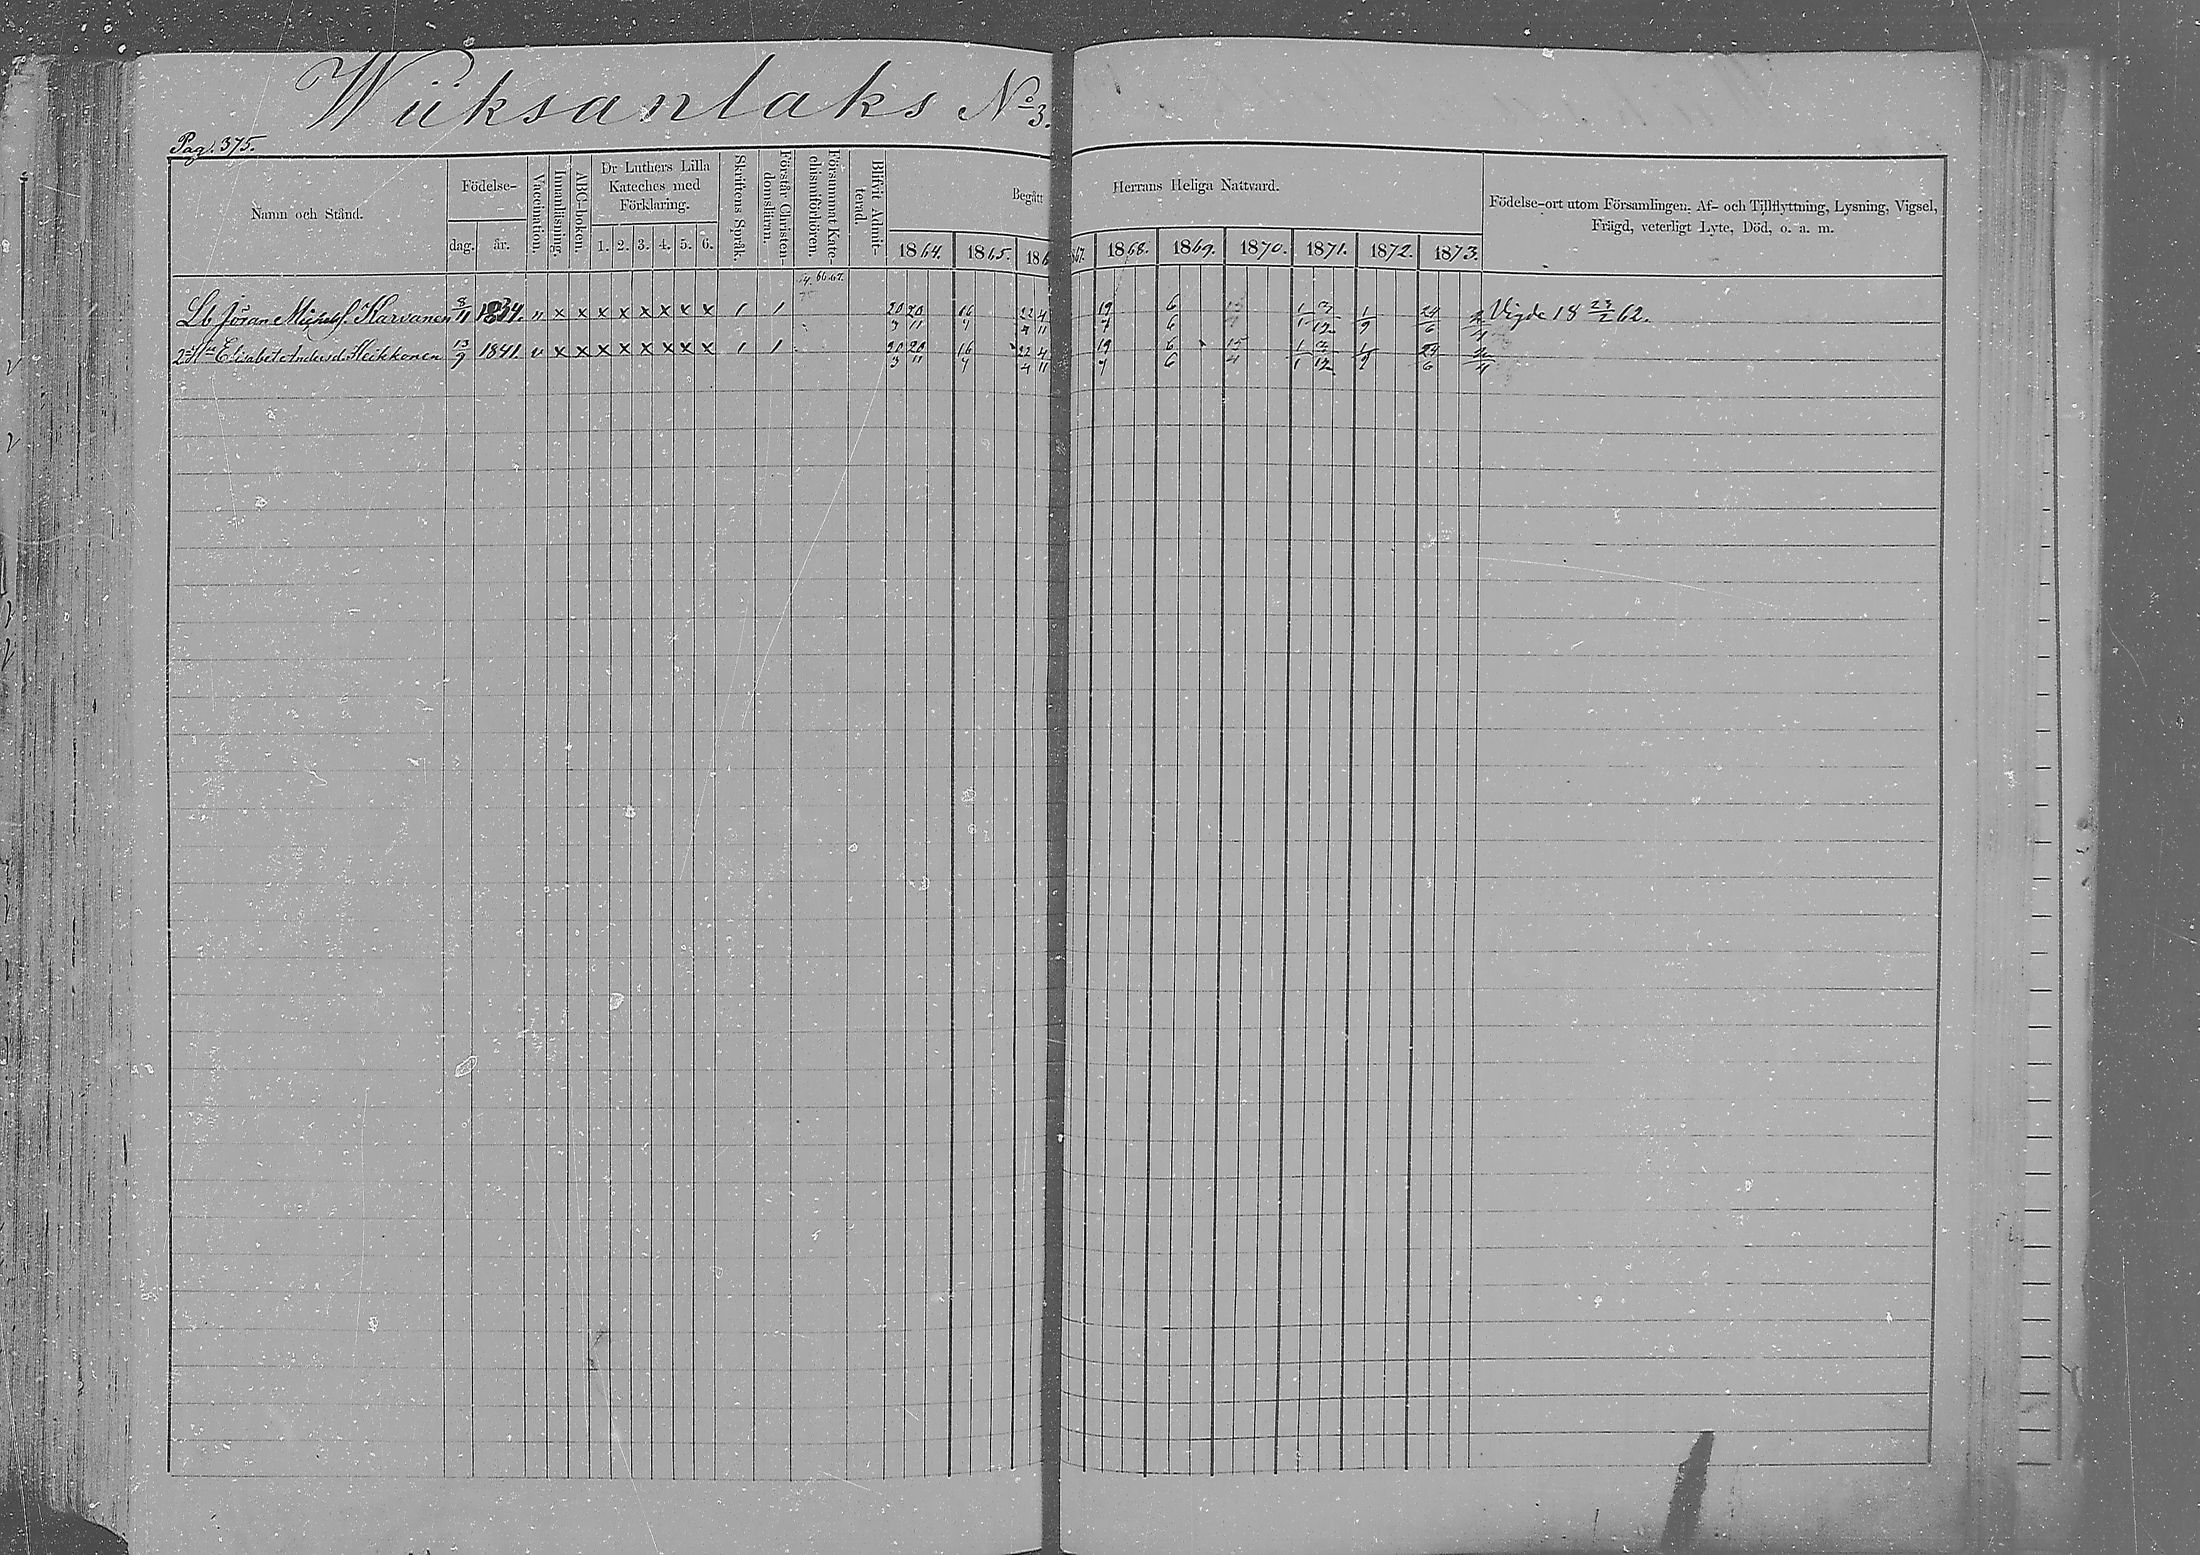 Wüksanlaks No 3.
Pag. 375.
Namn och Stånd.
Födelse-
dag.
år.
Vaccination.
Innanläsning.
ABC-boken.
Dr Luthers Lilla
Kateches med
Förklaring.
1. 2. 3. 4. 5. 6.
Skriftens Språk.
Förstå Christen-
domsläran.
Försummat Kate-
chismiförhören.
Blifvit Admit-
terad.
Begått
Herrans Heliga Nattvard.
1864. 1865. 186 67. 1868. 1869. 1870. 1871. 1872. 1873.
Födelse-ort utom Församlingen, Af- och Tillflyttning, Lysning, Vigsel,
Frägd, veterligt Lyte, Död, o. a. m.
66. 67.
Lb. Jöran Karvanen 8/11 1834. x x x x x x x x 1 1 20 20/11 16/4 22/4 4/11 19/4 6/6 1/1 1/9 24/6 Vigde 18 23/2 62.
Elisabet Andersd. Heikkonen 13/9 1841. x x x x x x x x 1 1 20/3 20/11 16/4 22/4 4/11 19/4 6/6 15/4 1/1 1/9 24/6